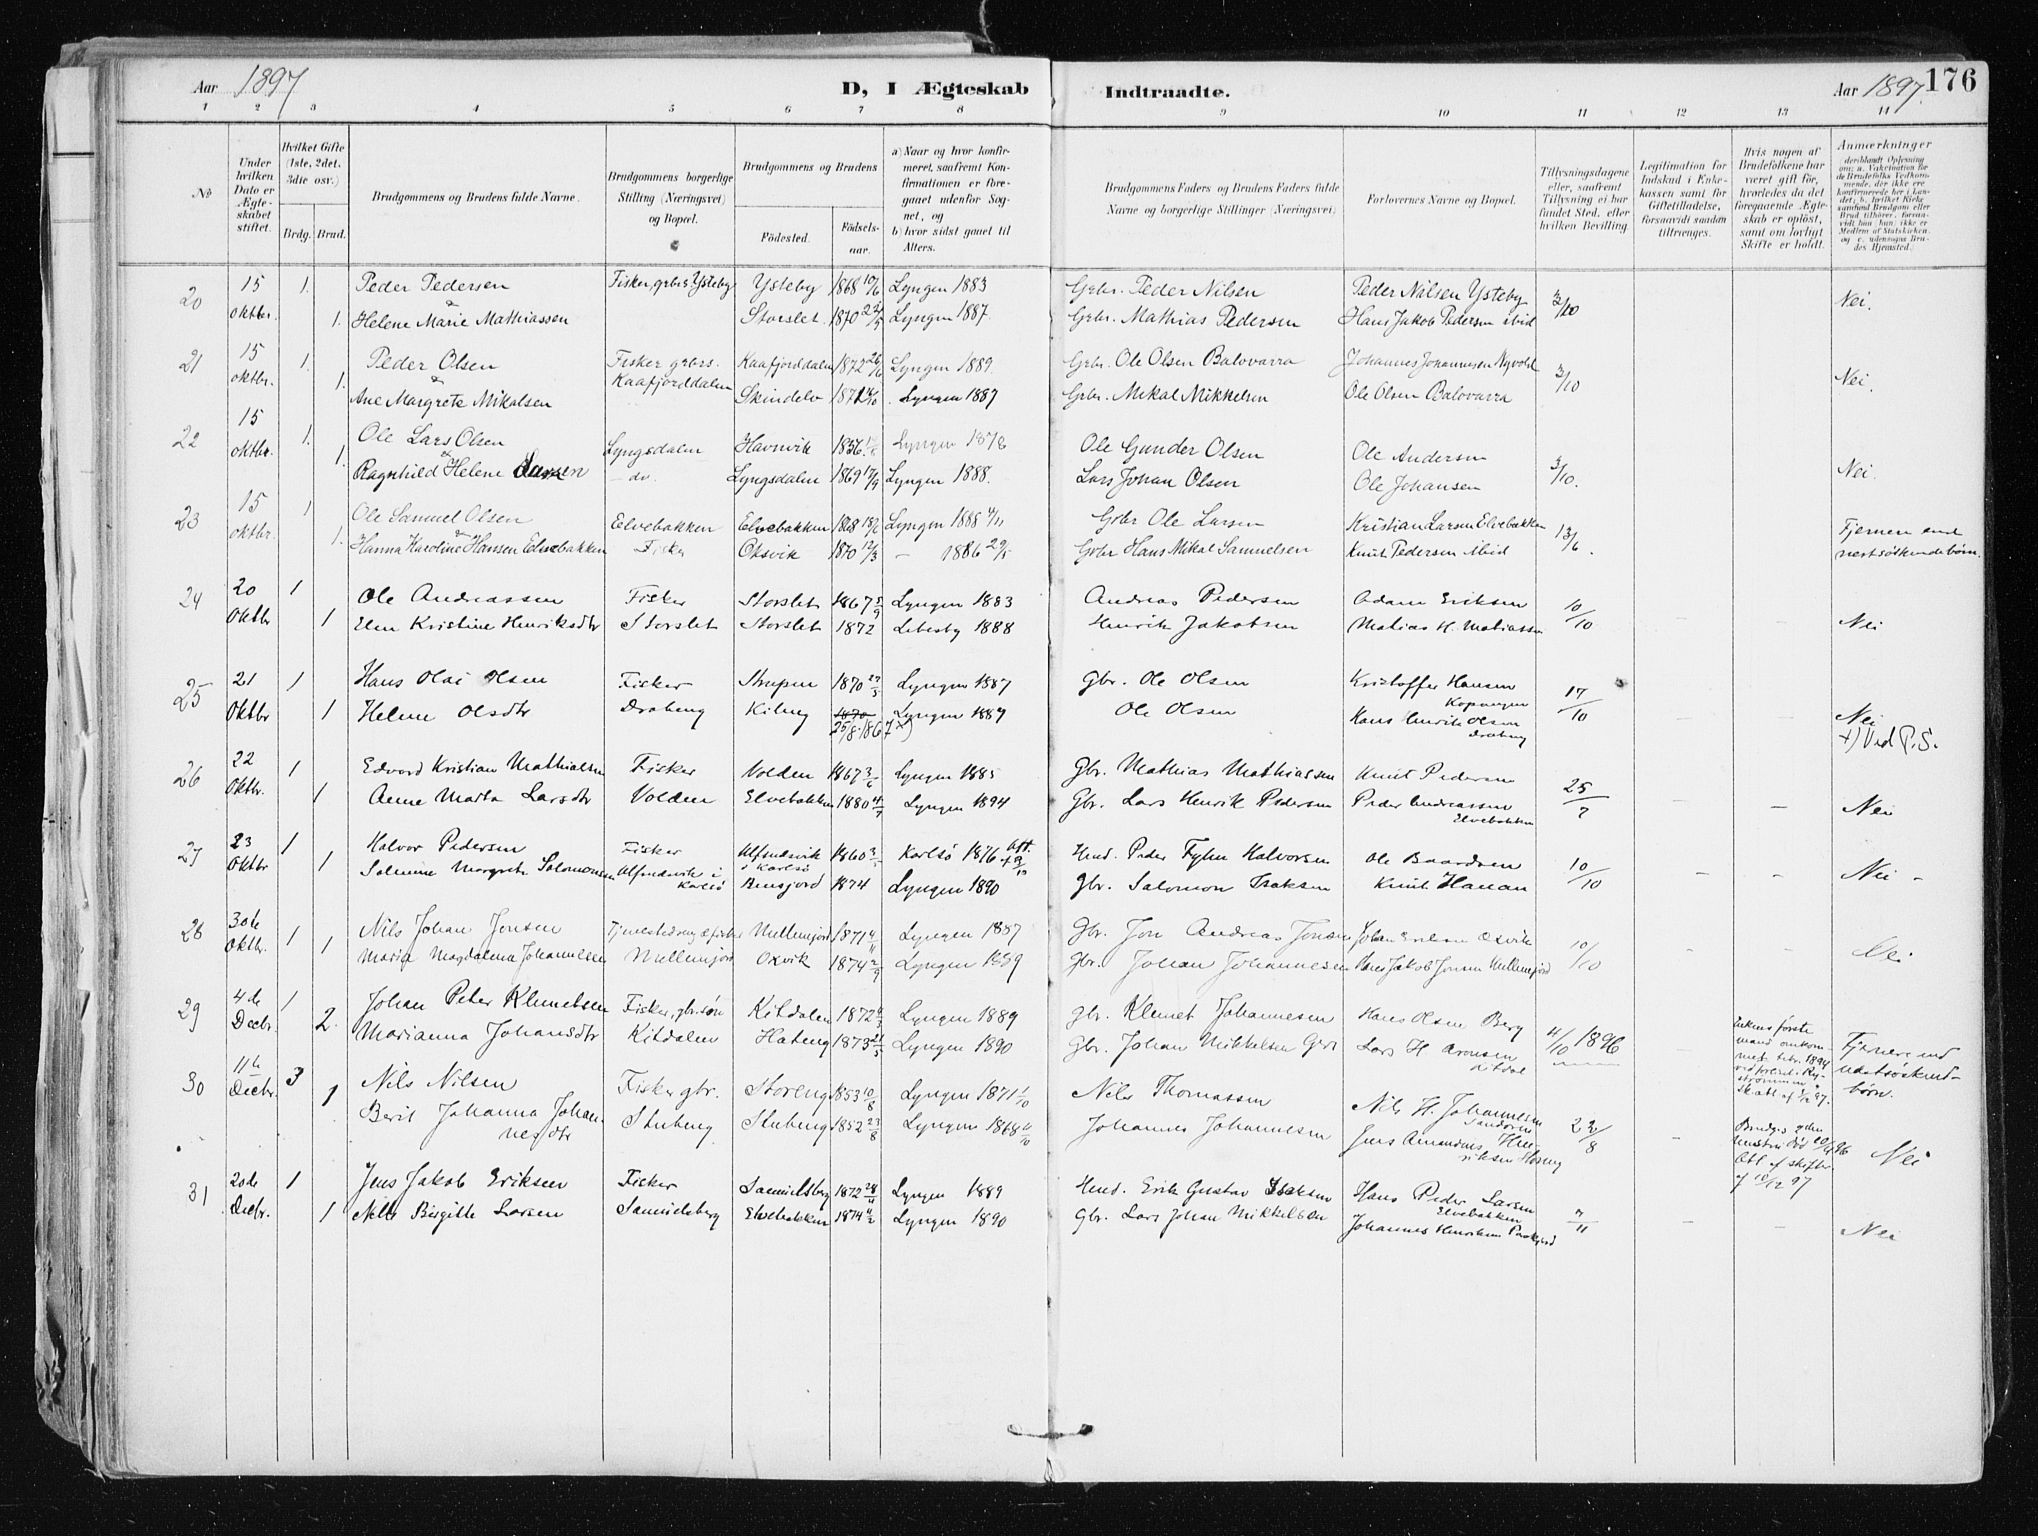 Aar 1897 D, I Ægteskab Indtraadte. Aar 1897. 176
1 2 3 4 5 6 7 8 9 10 11 12 13 14
No
Under hvilken Dato er Ægteskabet stiftet.
Hvilket Gifte (1ste, 2det, 3die osv.)
Brdg. Brud.
Brudgommens og Brudens fulde Navne.
Brudgommens borgerlige Stilling (Næringsvei) og Bopæl.
Brudgommens og Brudens
Fødested. Fødselsaar.
a) Naar og hvor konfirmeret, saafremt Konfirmationen er foregaaet udenfor Sognet, og
b) hvor sidst gaaet til Alters.
Brudgommens Faders og Brudens Faders fulde Navne og borgerlige Stillinger (Næringsvei)
Forlovernes Navne og Bopæl.
Tillysningsdagene eller, saafremt Tillysning ei har fundet Sted, efter hvilken Bevilling.
Legitimation for Indskud i Enkekassen samt for Giftetilladelse, forsaavidt saadan tiltrænges.
Hvis nogen af Brudefolkene har været gift før, hvorledes da det foregaaende Ægteskab er opløst, samt om lovligt Skifte er holdt.
Anmærkninger
20 15 oktbr. 1. Peder Pedersen Fisker, grbrs Ysteby Ysteby 1868 10/6 Lyngen 1883 Grbr. Peder Nilsen Peder Nilsen Ysteby 3/10 Nei.
1. & Helene Marie Mathiassen Storslet 1870 24/5 Lyngen 1887. Grbr. Mathias Pedersen Hans Jakob Pedersen ibid
21 15 oktbr. 1. Peder Olsen Fisker grbrs. Kaafjorddalen Kaafjorddalen 1872 26/6 Lyngen 1889. Grbr. Ole Olsen Balovarra Johannes Johannesen Nyvold 3/10 Nei.
1. & Ane Margrete Mikalsen Skindelv Lyngen 1887 Grbr. Mikal Mikkelsen Ole Olsen Balovarra
22 15 oktbr. 1. Ole Lars Olsen Lyngsdalen Havnvik 1856 Lyngen 1878 Ole Gunder Olsen Ole Andersen 3/10. Nei.
1. & Ragnhild Helene Larsen - do. Lyngsdalen 1869 17/9 Lyngen 1888. Lars Johan Olsen Ole Johansen
23 15 oktbr. 1 Ole Samuel Olsen Elvebakken Elvebakken 1868 18/6 Lyngen 1888 4/11 Grbr Ole Larsen Kristian Larsen Elvebakken 13/6. Fjernere end
1. & Hanna Karoline Hansen Elvebakken Fisker Oksvik 1870 12/3 - 1886 29/5 Grbr Hans Mikal Samuelsen Knut Pedersen ibid nestsöskendebörn.
24 20 Oktbr 1 Ole Andreassen Fisker Storslet 1867 5/9 Lyngen 1883 Andreas Pedersen Adam Eriksen 10/10 -
1 Elen Kristine Henriksdtr Storslet Storslet 1872 Lebesby 1888 Henrik Jakobsen Matias H. Matiassen Nei
25 21 Oktbr 1 Hans Olai Olsen Fisker Strupen 1870 27/5 Lyngen 1887 Gbr. Ole Olsen Kristoffer Hansen Kopangen 17/10 -
1 Helene Olsdtr Draheng Kileng 1870 25/8 1867 x) Lyngen 1889 Ole Olsen Hans Henrik Olsen Draheng Nei
x) Ved P.S.
26 22 Oktbr. 1 Edvard Kristian Mathiassen Fisker Volden 1867 3/6 Lyngen 1885 Gbr. Mathias Mathiassen Knut Pedersen 25/7 - -
1 Anne Marta Larsdtr Volden Elvebakken 1880 4/7 Lyngen 1894 Gbr. Lars Henrik Pedersen Peder Andreassen Elvebakken Nei
27 23 Oktbr 1 Halvor Pedersen Fisker Ulfsundsvik i Karlsö 1860 Karlsö 1876 Hmd. Peder Fyhn Halvorsen Ole Baardsen 10/10 - -
1 Salmine Margrete Salomonsen Karlsö Bensjord 1874 Lyngen 1890 Gbr. Salomon Isaksen Knut Hanan Nei -
28 30te Oktbr. 1 Nils Johan Jonsen Tjenestedreng & fisker Mellemjord 1871 4/11 Lyngen 1887 Gbr. Jon Andreas Jonsen Johan Eriksen Oxvik 10/10 - -
1 Maria Magdalena Johannesen Mellemjord Oxvik 1874 2/9 Lyngen 1889 Gbr. Johan Johannesen Hans Jakob Jonsen Mellemjord Nei
29 4de Decbr. 1 Johan Peter Klemetsen Fisker, gbr.sön Kitdalen 1872 Lyngen 1889 Gbr. Klemet Johannesen Hans Olsen Berg 4/10 1896 - Enkens förste mand omkom Fjernere end
2. Marianna Johansdtr Kitdalen Hateng 1873 21/5 Lyngen 1890 Gbr. Johan Mikkelsen Lars H. Aronsen Kitdal nestsöskendbörn.
30 11te Decbr. 3 Nils Nilsen Fisker, gbr. Storeng 1853 10/8 Lyngen 1871 1/10 Nils Thomassen Nils H. Johannesen Sandören 22/8 -
1 Berit Johanna Johannesdtr Stubeng Stubeng 1852 23/8 Lyngen 1868 4/10 Johannes Johannesen Jens Amandus Henriksen Storeng Nei
31 20de Decbr. 1 Jens Jakob Eriksen Fisker Samuelsberg 1872 28/11 Lyngen 1889 Hmd. Erik Gustav Isaksen Hans Peder Larsen Elvebakken 7/11 - -
1 Nella Birgitte Larsen Samuelsberg Elvebakken 1874 4/2 Lyngen 1890 Gbr. Lars Johan Mikkelsen Johannes Henriksen Nei